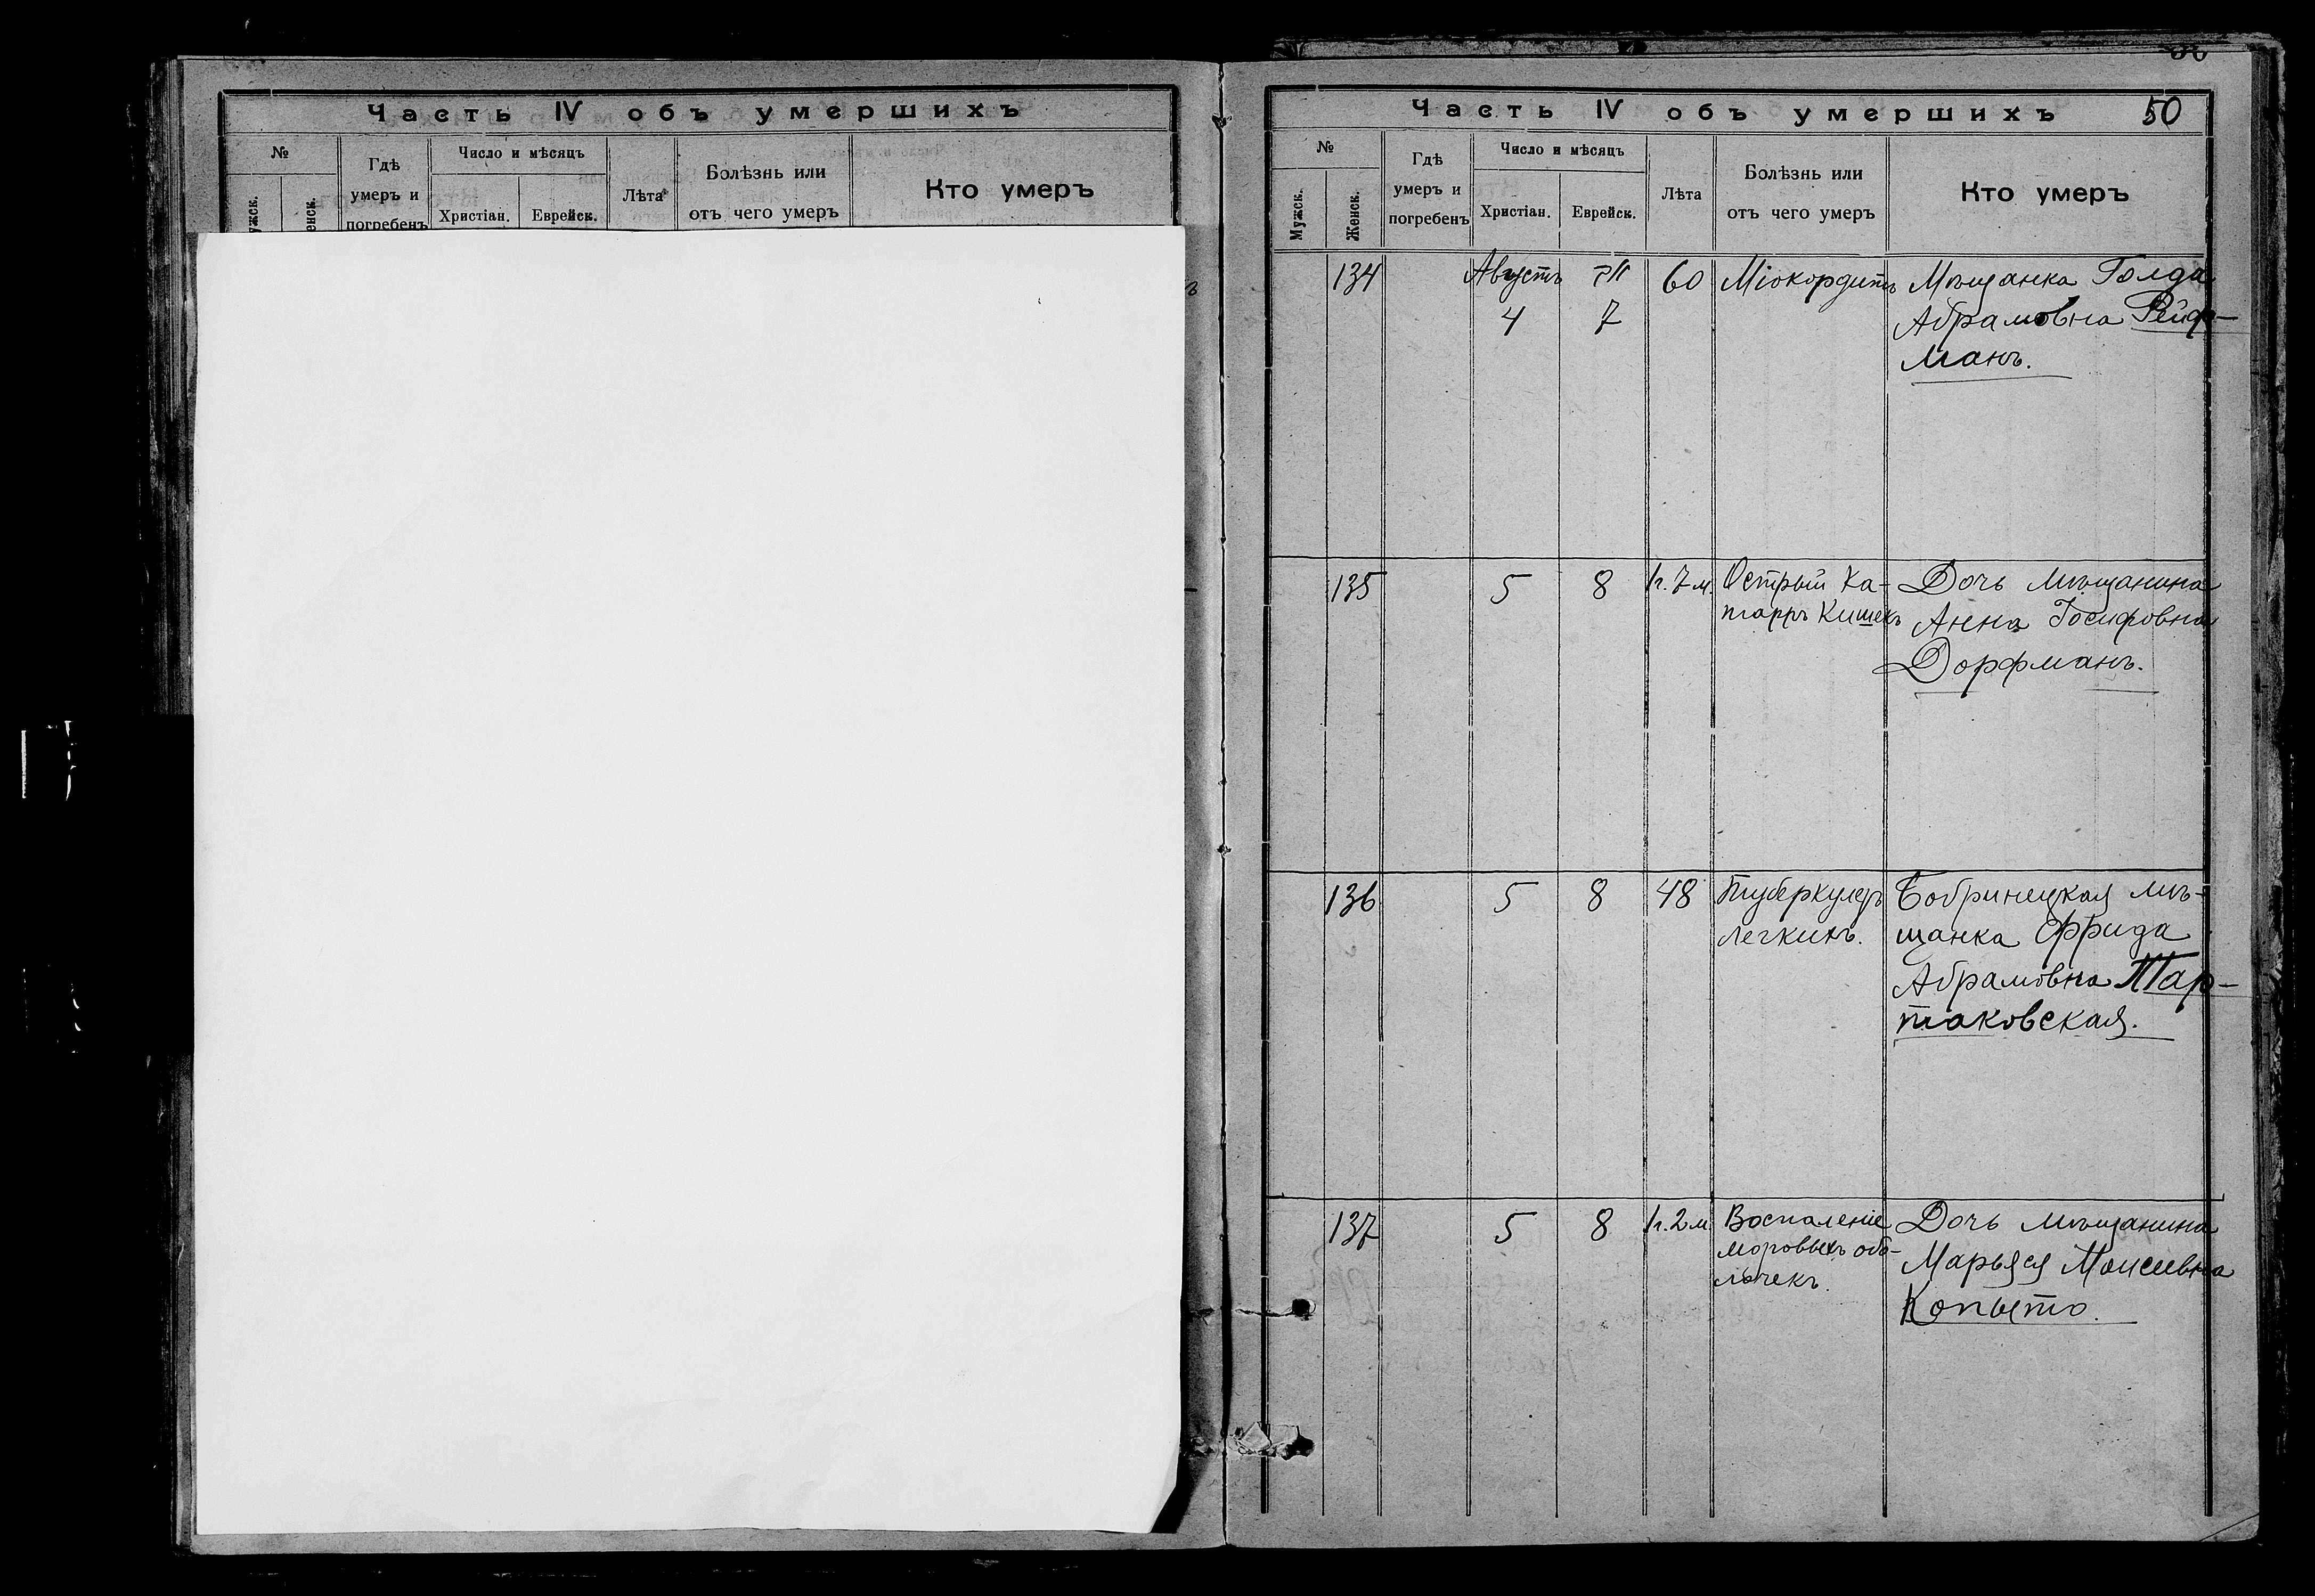 Часть IV объ умершихъ
№
Гдѣ умеръ и погребенъ
Число и мѣсяцъ
Христіан.
Еврейск.
Лѣта
Болѣзнь или отъ чего умеръ
Кто умеръ
Часть IV объ умершихъ
50
№
Мужск.
Женск.
Гдѣ умеръ и погребенъ
Число и мѣсяцъ
Христіан.
Еврейск.
Лѣта
Болѣзнь или отъ чего умеръ
Кто умеръ
134 Августъ 60 Міокордитъ Мѣщанка Голда
4 7 Абрамовна Рейф-
манъ.
135 5 8 1г. 7м. Острый ка- Дочь мѣщанина
тарръ кишекъ Анна Іосифовна
Дорфманъ.
136 5 8 48 Туберкулезъ Бобринецкая мѣ-
легкихъ. щанка Фрида
Абрамовна Тар-
таковская.
137 5 8 1г. 2м Воспаленіе Дочь мѣщанина
обо- Марьяся Моисеевна
лочекъ. Копыто.